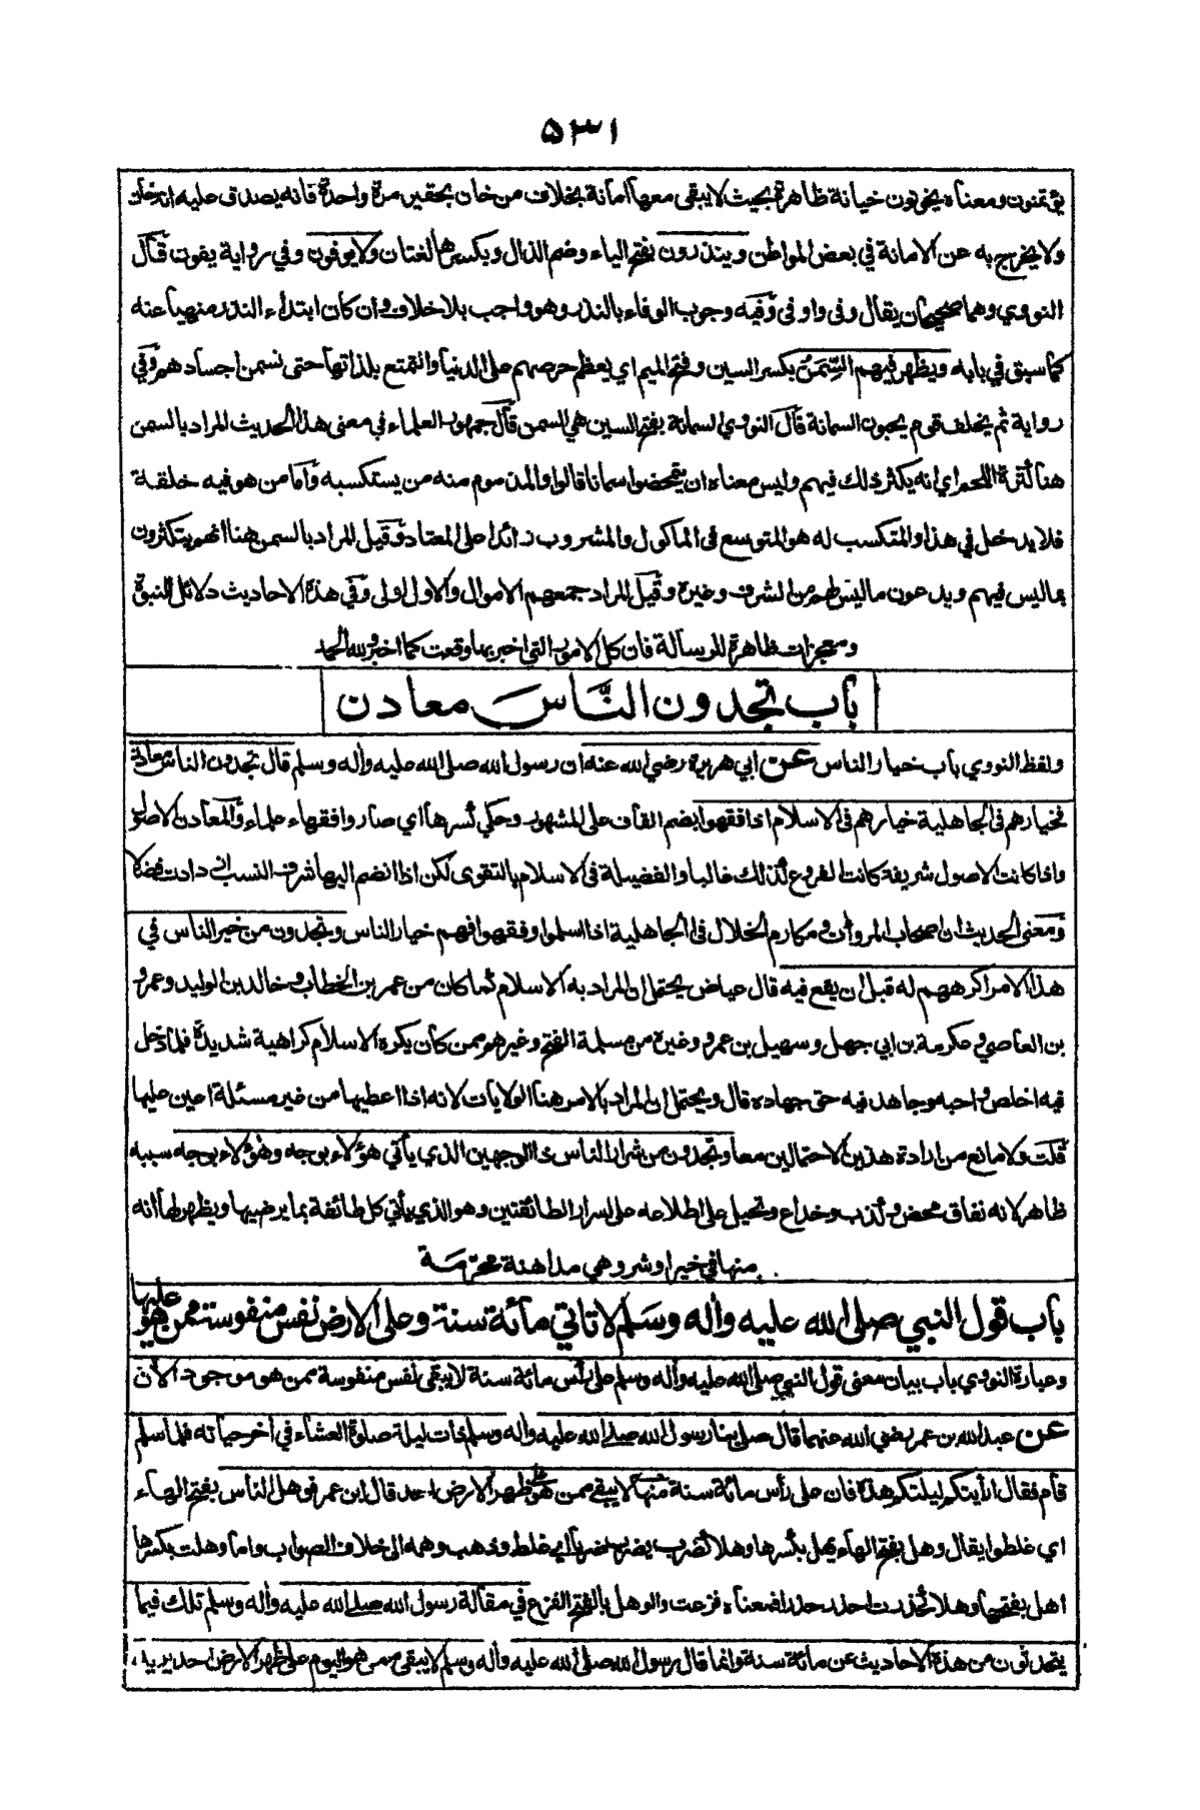 ۵۳۱
يؤتمنون ومعناه يخونون خيانة ظاهرة بحيث لا يبقى معها امانة بخلاف من خان بحقير مرة واحدة فانه يصدق عليه انه خان
ولا يخرج به عن الامانة في بعض المواطن وينذرون بفتح الياء وضم الذال وبكسرها لغتان ولا يوفون وفي رواية يفون قال
النووي وهما صحيحان يقال وفى واوفى وفيه وجوب الوفاء بالنذر وهو واجب بلا خلاف وان كان ابتداء النذر منهيا عنه
كما سبق في بابه ويظهر فيهم السِّمَنُ بكسر السين وفتح الميم اي يعظم حرصهم على الدنيا والتمتع بلذاتها حتى تسمن اجسادهم وفي
رواية ثم يخلف قوم يحبون السمانة قال النووي السمانة بفتح السين هي السمن قال جمهور العلماء في معنى هذا الحديث المراد بالسمن
هنا كثرة اللحم اي انه يكثر ذلك فيهم وليس معناه ان يتمحضوا سمانا قالوا والمذموم منه من يستكسبه واما من هو فيه خلقة
فلا يدخل في هذا والمتكسب له هو المتوسع في الماكول والمشروب زائدا على المعتاد وقيل المراد بالسمن هنا انهم يتكثرون
بما ليس فيهم ويدعون ما ليس لهم من الشرف وغيره وقيل المراد جمعهم الاموال والاول اولى وفي هذه الاحاديث دلائل النبوة
ومعجزات ظاهرة للرسالة فان كل الامور التي اخبر بها وقعت كما اخبر ولله الحمد
باب تجدون النَّاسَ معادن
ولفظ النووي باب خيار الناس عن ابي هريرة رضي الله عنه ان رسول الله صلى الله عليه واله وسلم قال تجدون الناس معادن
فخيارهم في الجاهلية خيارهم في الاسلام اذا فقهوا بضم القاف على المشهور وحكي كسرها اي صاروا فقهاء علماء والمعادن الاصول
واذا كانت الاصول شريفة كانت الفروع كذلك غالبا والفضيلة في الاسلام بالتقوى لكن اذا انضم اليها شرف النسب ازدادت فضلا
ومعنى الحديث ان اصحاب المروأت ومكارم الخلال في الجاهلية اذا اسلموا وفقهوا فهم خيار الناس وتجدون من خير الناس في
هذا الامر اكرههم له قبل ان يقع فيه قال عياض يحتمل ان المراد به الاسلام كما كان من عمر بن الخطاب وخالد بن الوليد وعمرو
بن العاصي وعكرمة بن ابي جهل وسهيل بن عمرو وغيره من مسلمة الفتح وغيرهم ممن كان يكره الاسلام كراهية شديدة فلما دخل
فيه اخلص واحبه وجاهد فيه حق جهاده قال ويحتمل ان المراد بالامر هنا الولايات لانه اذا اعطيها من غير مسئلة اعين عليها
قلت ولا مانع من ارادة هذين الاحتمالين معا وتجدون من شرار الناس ذا الوجهين الذي يأتي هؤلاء بوجه وهؤلاء بوجه سببه
ظاهر لانه نفاق محض وكذب وخداع وتحيل على اطلاعه على اسرار الطائفتين وهو الذي يأتي كل طائفة بما يرضيها ويظهر لها انه
منها في خير او شر وهي مداهنة محرّمة
باب قول النبي صلى الله عليه واله وسلم لا تاتي مائة سنة وعلى الارض نفس منفوسة ممن هو عليها
وعبارة النووي باب بيان معنى قول النبي صلى الله عليه واله وسلم على رأس مائة سنة لا يبقى نفس منفوسة ممن هو موجود الآن
عن عبد الله بن عمر رضي الله عنهما قال صلى بنا رسول الله صلى الله عليه واله وسلم ذات ليلة صلوة العشاء في اخر حياته فلما سلم
قام فقال ارأيتكم ليلتكم هذه فان على رأس مائة سنة منها لا يبقى ممن هو على ظهر الارض احد قال ابن عمر فوهل الناس بفتح الهاء
اي غلطوا يقال وهل بفتح الهاء يهل بكسرها وهلا كضرب يضرب ضربا اي غلط وذهب وهمه الى خلاف الصواب واما وهلت بكسرها
اهل بفتحها وهلا كحذرت احذر حذرا فمعناه فزعت والوهل بالفتح الفزع في مقالة رسول الله صلى الله عليه واله وسلم تلك فيما
يتحدثون من هذه الاحاديث عن مائة سنة وانما قال رسول الله صلى الله عليه واله وسلم لا يبقى ممن هو اليوم على ظهر الارض احد يريد